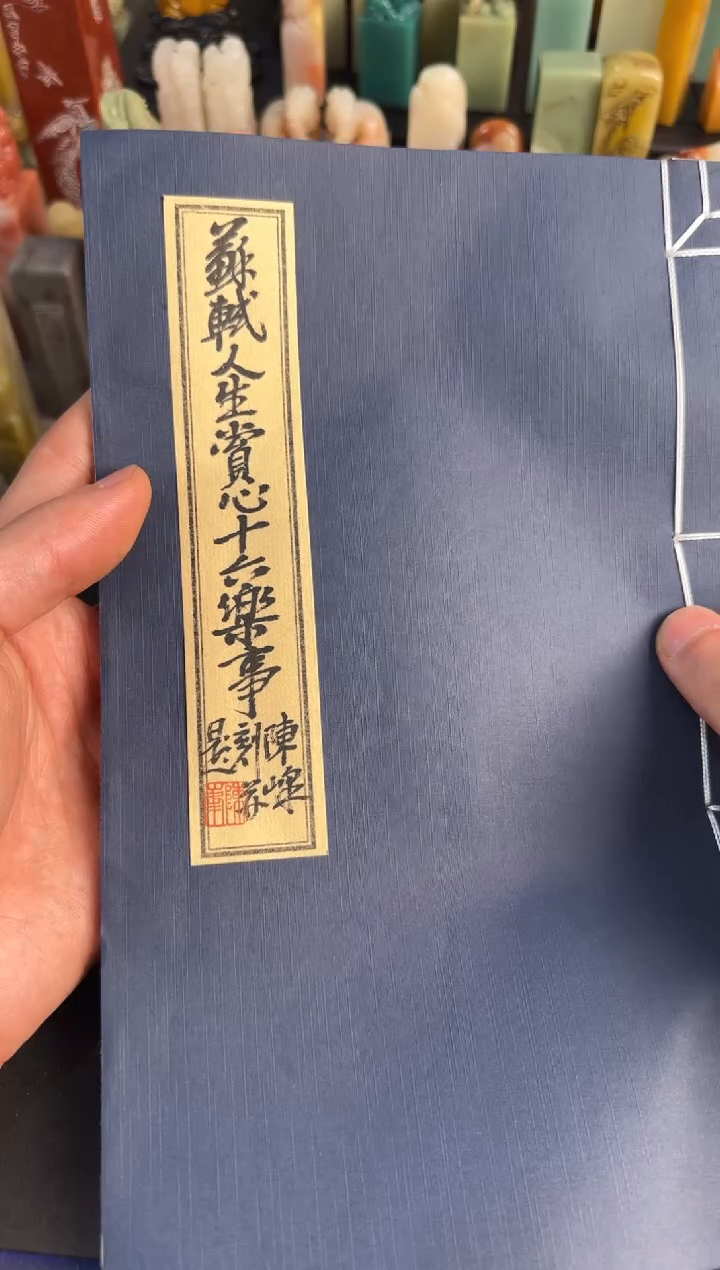 蘇軾人生賞心十六樂事
陳峰
刻并
題